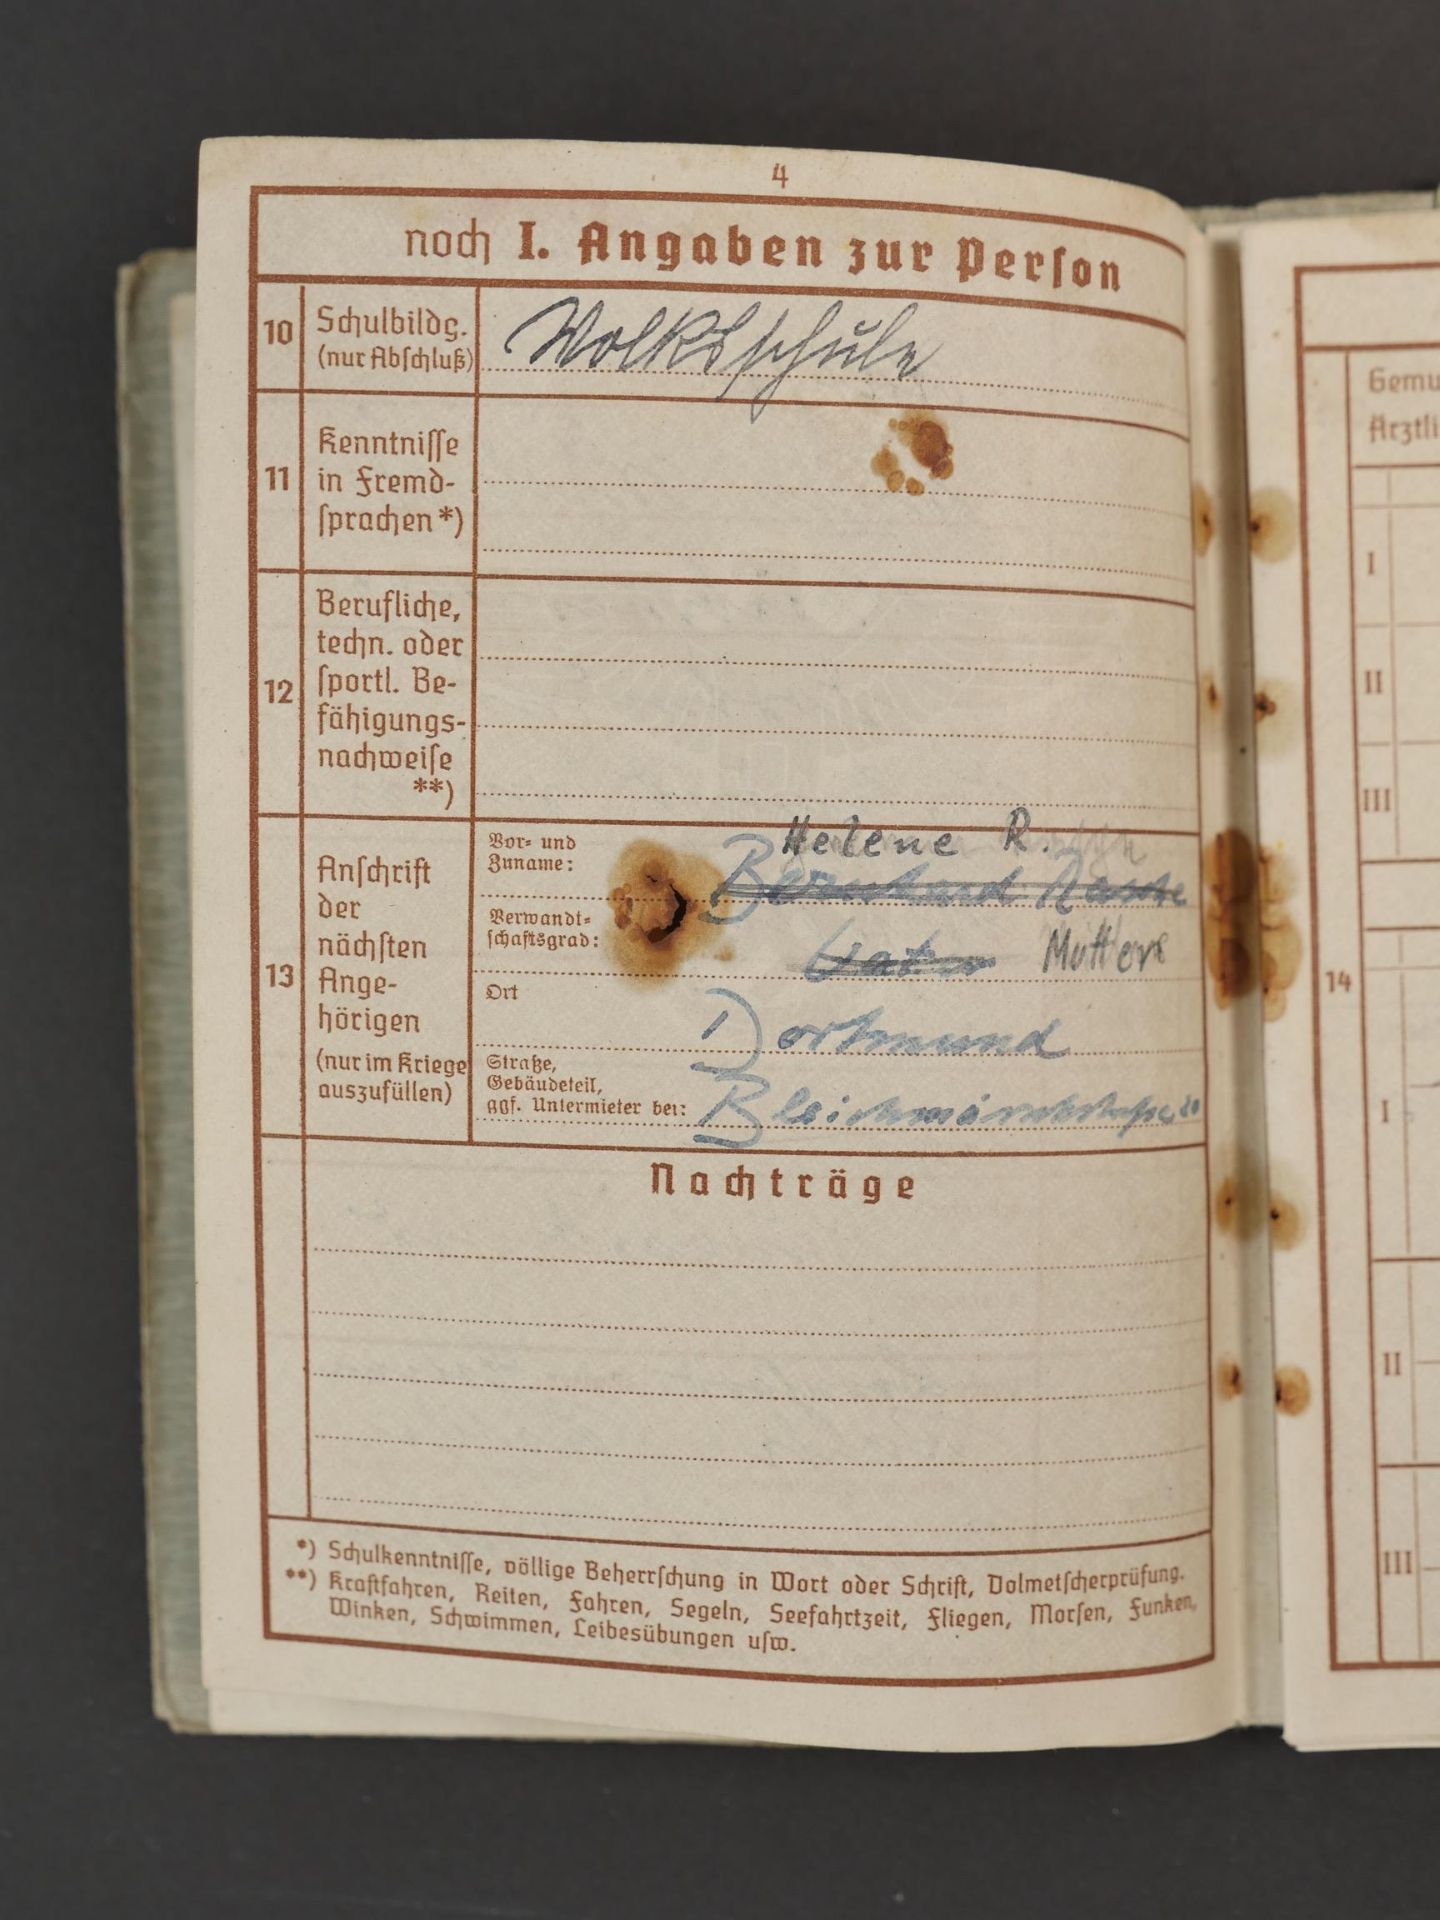 4
noch I. Angaben zur Person
10
Schulbildg.
(nur Abschluß)
Volksschule
11
Kenntnisse
in Fremd-
sprachen *)
12
Berufliche,
techn. oder
sportl. Be-
fähigungs-
nachweise
**)
13
Anschrift
der
nächsten
Ange-
hörigen
(nur im Kriege
auszufüllen)
Vor- und
Zuname:
Helene R.
Bernhard
Verwandt-
schaftsgrad:
Vater Mutter
Ort
Dortmund
Straße,
Gebäudeteil,
ggf. Untermieter bei:
Nachträge
*) Schulkenntnisse, völlige Beherrschung in Wort oder Schrift, Dolmetscherprüfung.
**) Kraftfahren, Reiten, Fahren, Segeln, Seefahrtzeit, Fliegen, Morsen, Funken,
Winken, Schwimmen, Leibesübungen usw.
Gemu
Ärztli
I
II
III
14
I
II
III